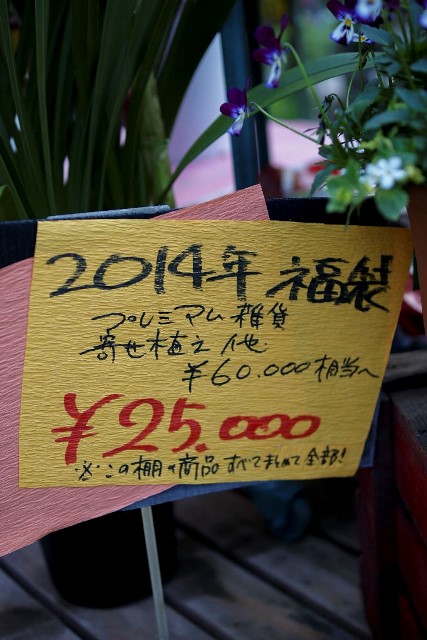 2014年 福袋
プレミアム雑貨
寄せ植え 他
¥60.000相当へ
¥25.000
※この棚の商品すべてまとめて全部!